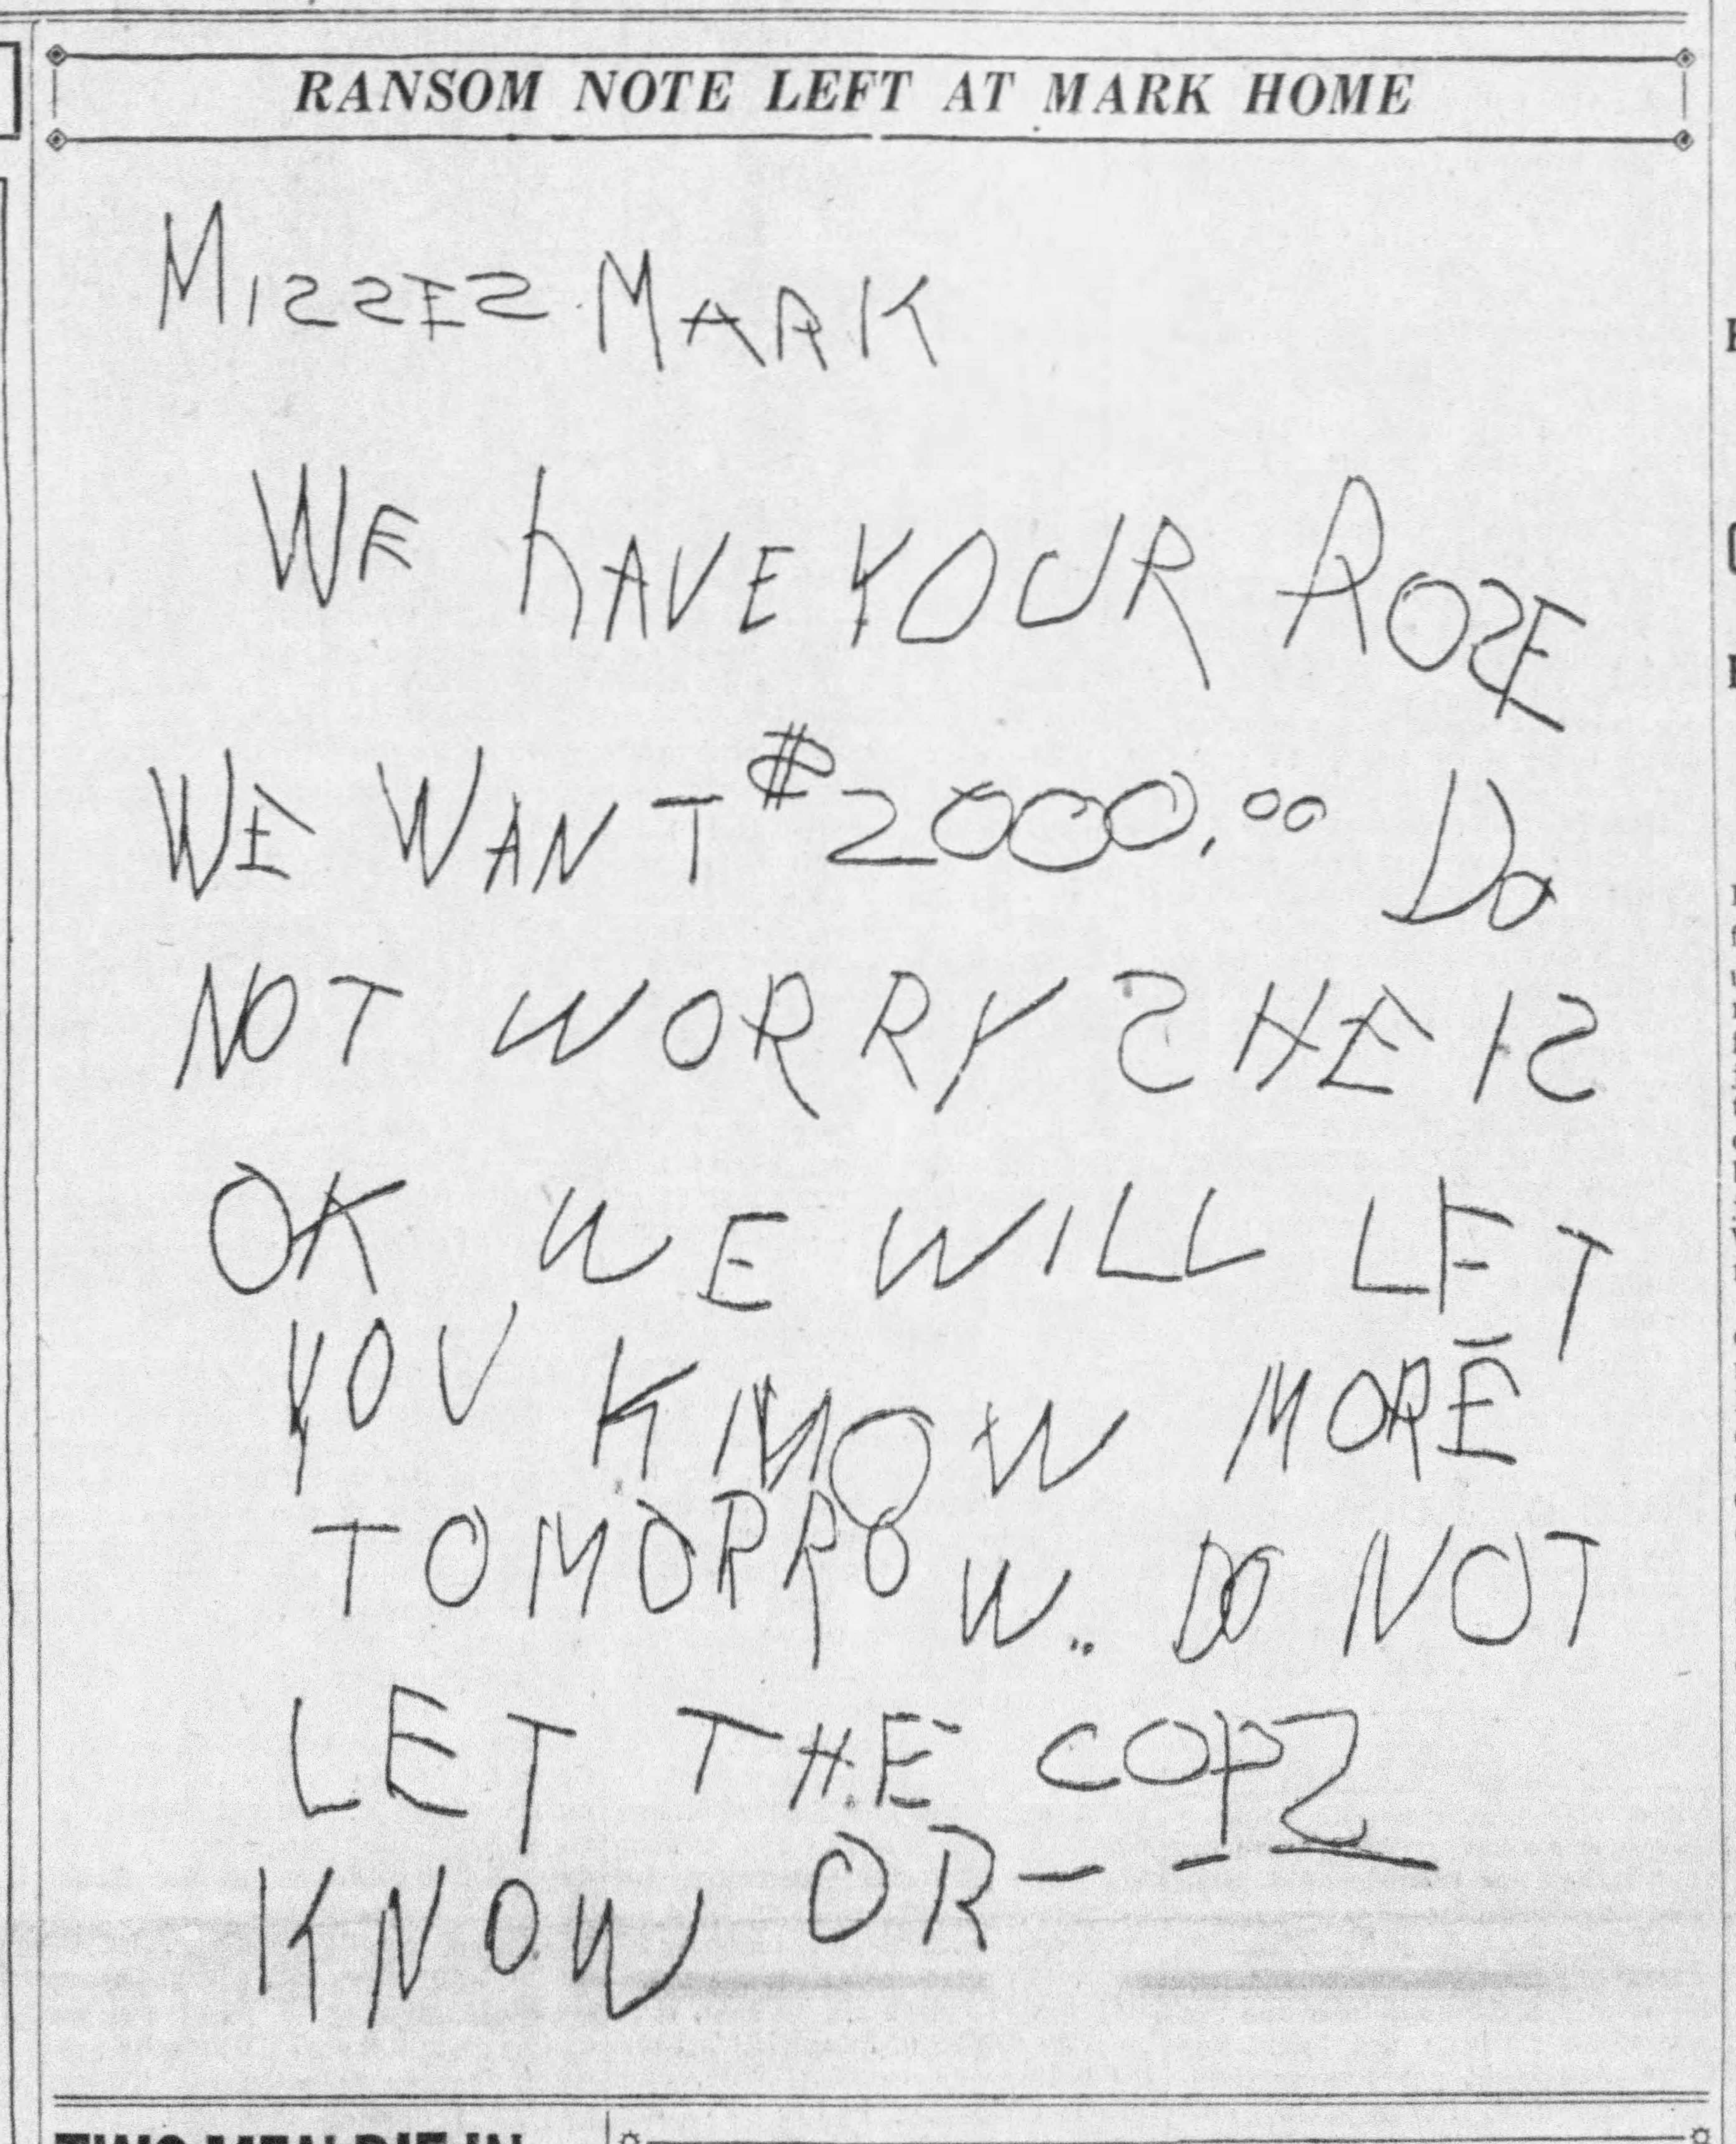 RANSOM NOTE LEFT AT MARK HOME
MISSES MARK
WE HAVE YOUR ROSE
WE WANT $2000.00 DO
NOT WORRY SHE IS
OK WE WILL LET
YOU KNOW MORE
TOMORROW.. DO NOT
LET THE COPS
KNOW OR - -
TWO MEN DIE IN